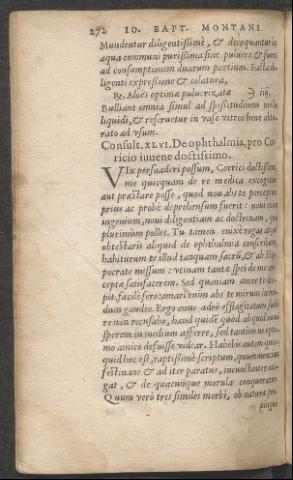 272 IO. BAPT. MONTANI
Mundentur diligentissimè, & decoquantur in
aqua communi purissima sine puluere & fumo
ad consumptionem duarum partium. Facta di-
ligenti expressione & colatura,
℞. Aloës optimæ puluerizatæ ℥ iiij.
Bulliant omnia simul ad spissitudinem mellis
liquidi, & reseruetur in vase vitreo bene obtu-
rato ad vsum.
Consult. XLVI. De ophthalmia, pro Co-
ricio iuuene doctissimo.
VIx persuaderi possum, Corrici doctissime,
me quicquam de re medica excogitare
aut præstare posse, quod non abs te perceptum
prius ac probè deprehensum fuerit: nouī enim
ingenium, noui diligentiam ac doctrinam, qua
plurimùm polles. Tu tamen enixè rogas atque
obtestaris aliquid de ophthalmia conscribam,
habiturum te illud tanquam sacrū, & ab Hip-
pocrate missum: vtinam tantæ spei de me con-
ceptæ satisfacerem. Sed quoniam amor te de-
pit, facilè feram: amari enim abs te mirum in mo-
dum gaudeo. Ergo onus adeò efflagitatum subi-
re non recusabo, haud quidē quòd aliquid noui
sperem in medium afferre, sed tantùm ne opti-
mo amico defuisse videar. Habebis autem quic-
quid hoc est, raptissimè scriptum, quum nuncius
festinans & ad iter paratus, incunctanter ur-
gat, & de quacunque morula conqueratur.
Quum verò tres similes morbi, ob naturæ pro-
pinqui